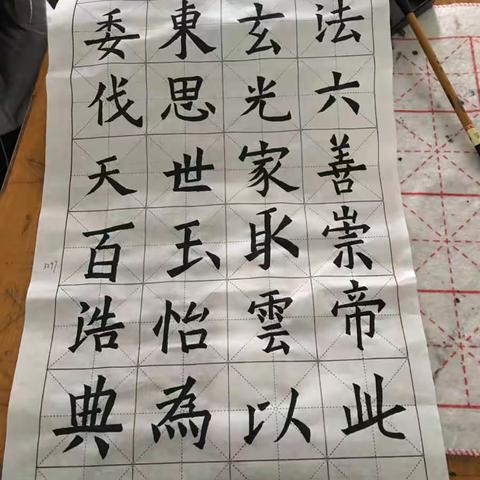 法六善崇帝此
玄光家取雲以
東思世玉怡為
委伐天百浩典